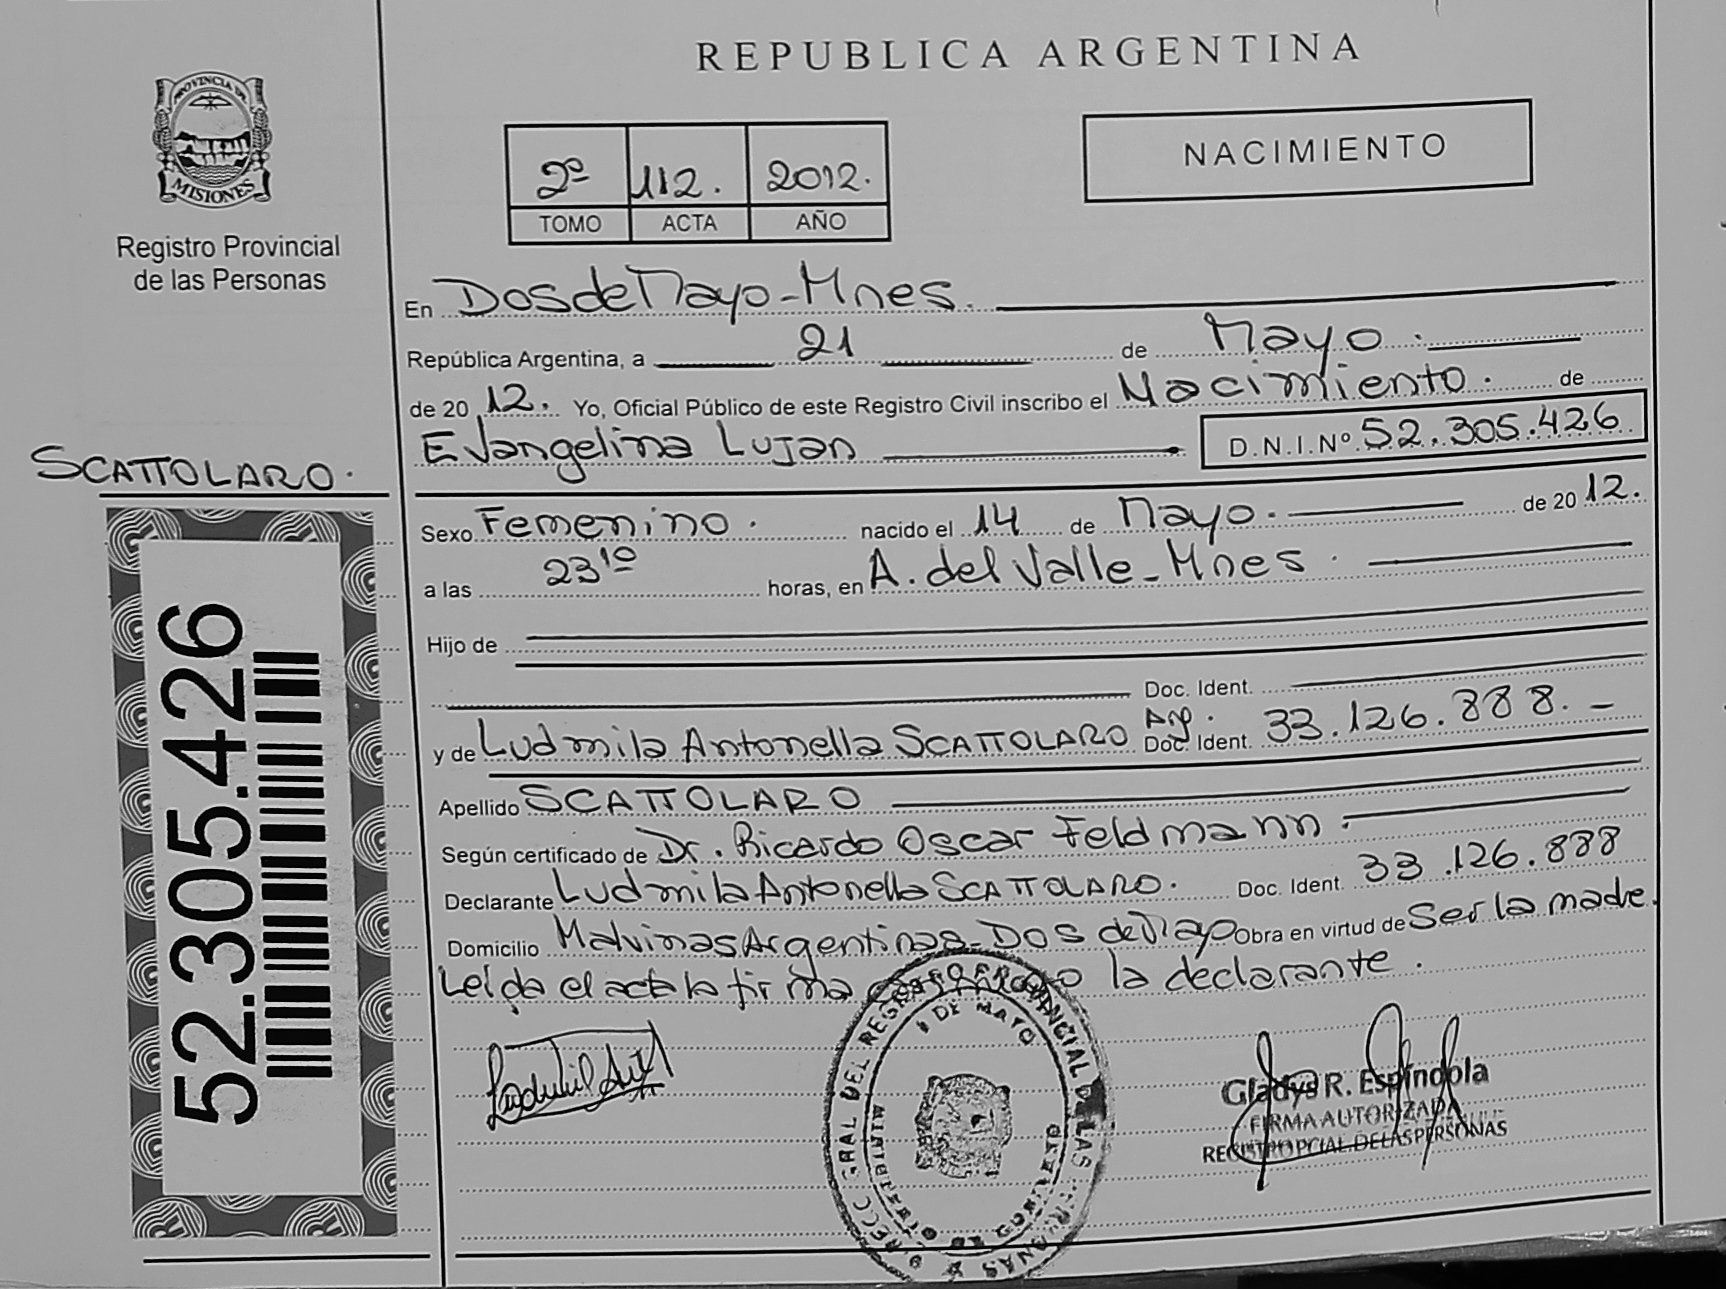 REPUBLICA ARGENTINA
PROVINCIA DE
MISIONES
Registro Provincial
de las Personas
2º 112. 2012.
TOMO ACTA AÑO
NACIMIENTO
En Dos de Mayo - Mnes.
República Argentina, a 21 de Mayo.
de 20 12. Yo, Oficial Público de este Registro Civil inscribo el Nacimiento. de
Evangelina Lujan D.N.I.Nº 52.305.426
SCATTOLARO.
Sexo Femenino. nacido el 14 de Mayo. de 20 12.
a las 23¹⁰ horas, en A. del Valle - Mnes.
Hijo de
Doc. Ident.
y de Ludmila Antonella SCATTOLARO Arg. Doc. Ident. 33.126.888.-
Apellido SCATTOLARO
Según certificado de Dr. Ricardo Oscar Feldmann.
Declarante Ludmila Antonella SCATTOLARO. Doc. Ident. 33.126.888
Domicilio Malvinas Argentinas - Dos de Mayo Obra en virtud de Ser la madre.
Leída el acta la firma la declarante.
52.305.426
REGISTRO PROVINCIAL DE LAS PERSONAS
DE MAYO
Gladys R. Espíndola
FIRMA AUTORIZADA
REGISTRO PCIAL. DE LAS PERSONAS